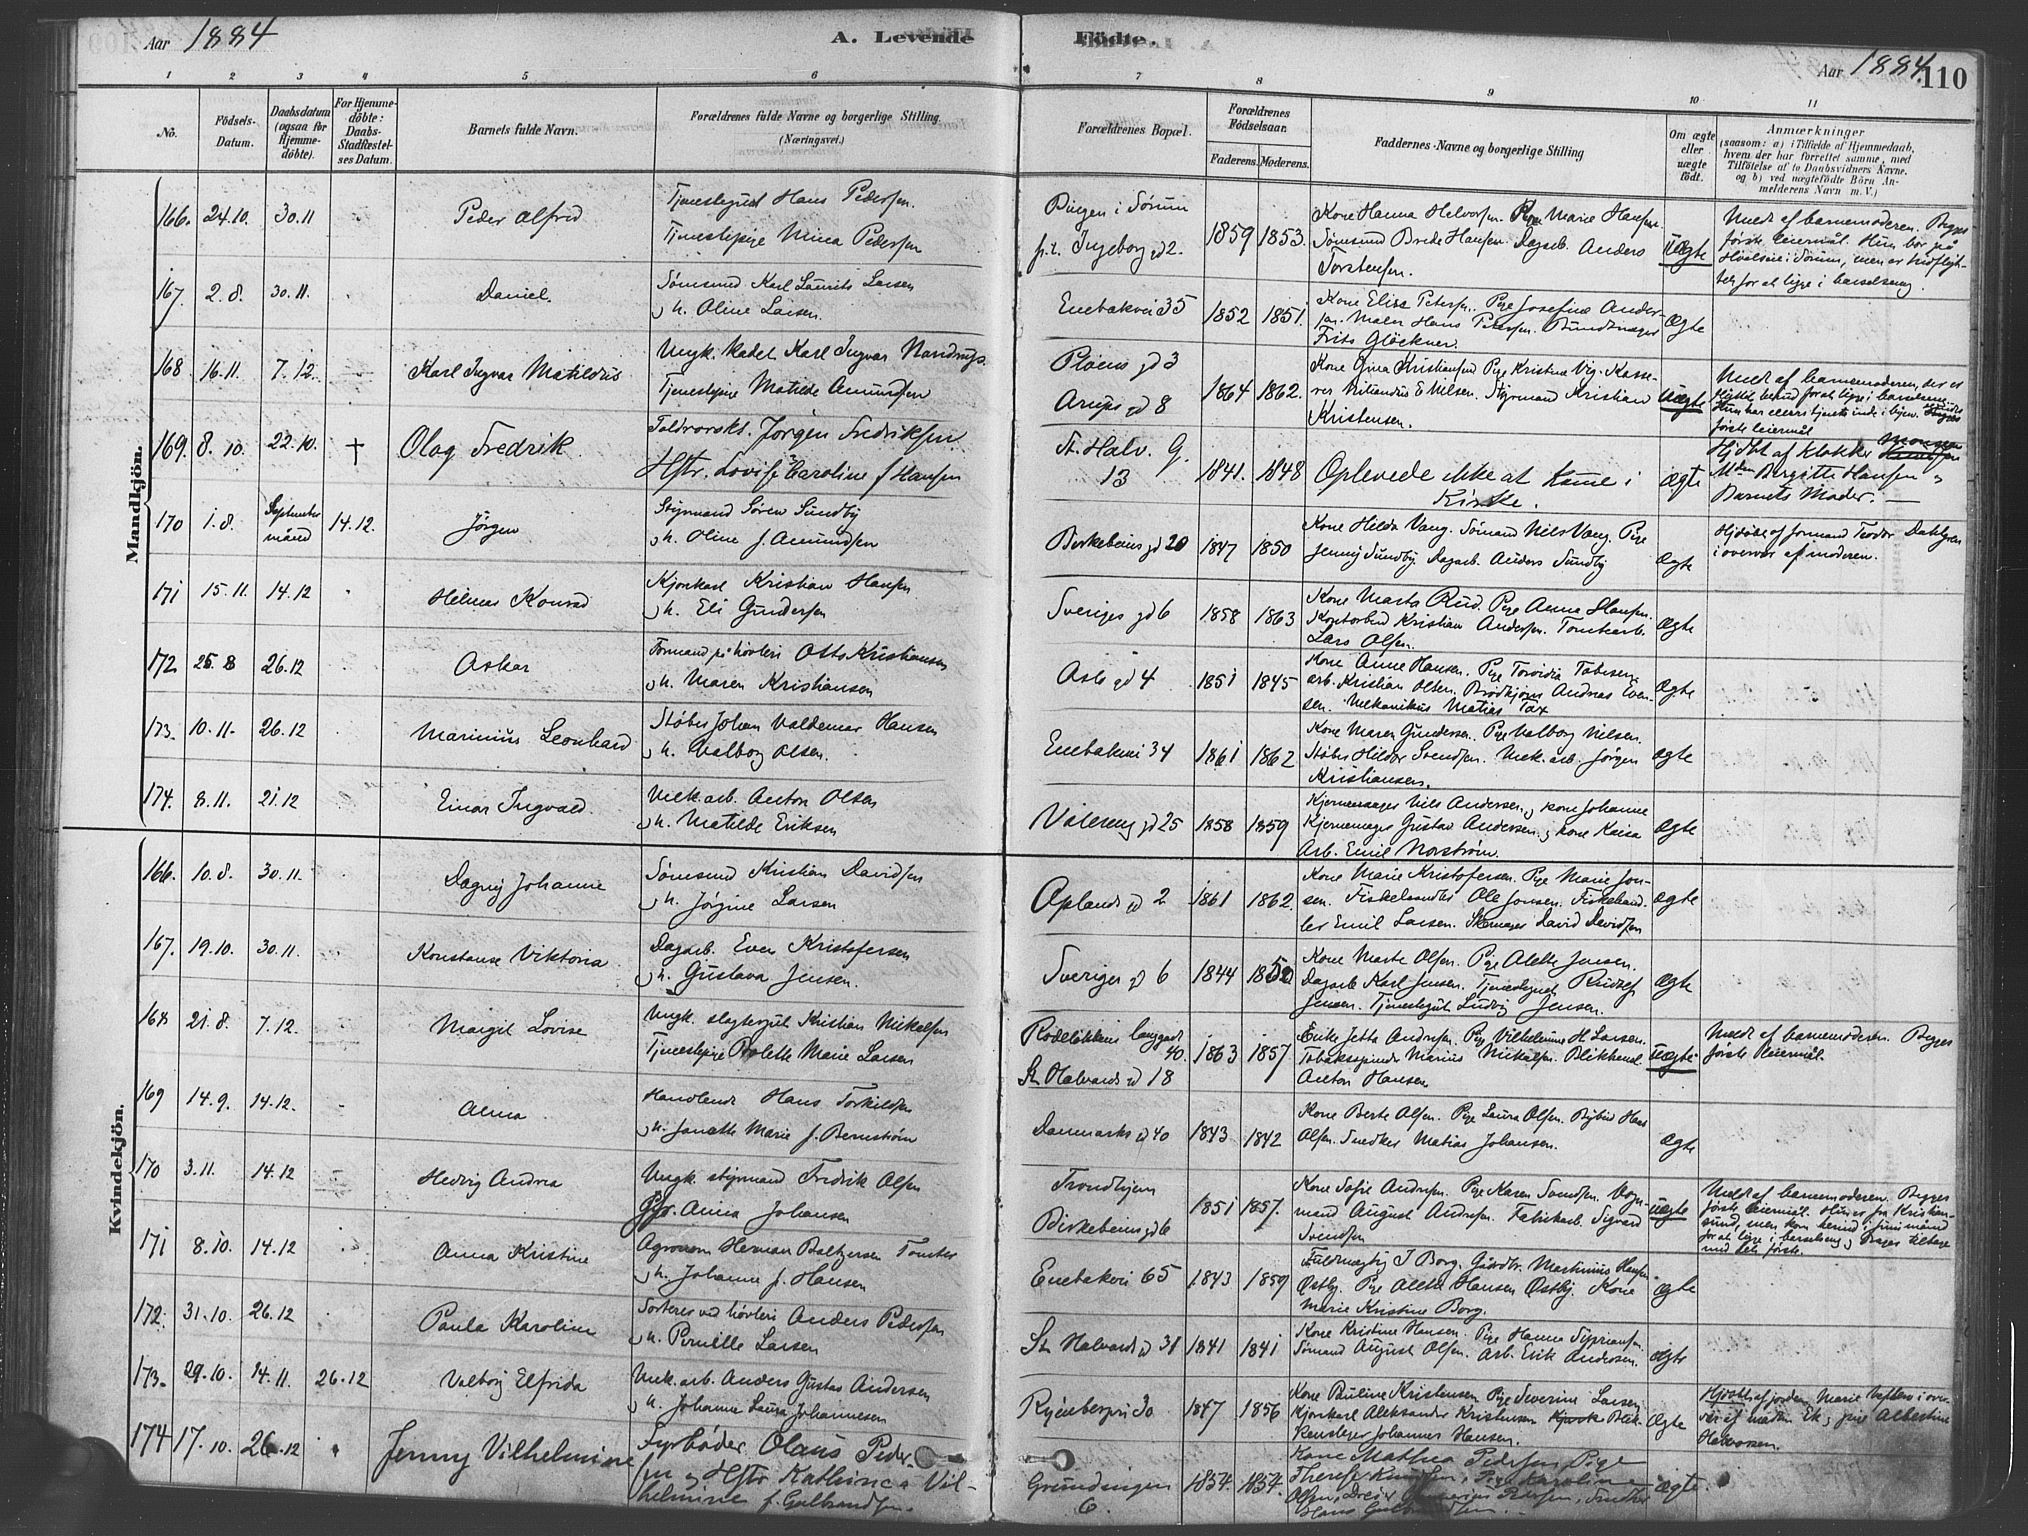 Aar 1884
A. Levende Födte.
Aar 1884. 110
1 2 3 4 5 6 7 8 9 10 11
No.
Födsels-Datum.
Daabsdatum (ogsaa for Hjemme-döbte).
For Hjemme-döbte: Daabs-Stadfæstel-ses Datum.
Barnets fulde Navn.
Forældrenes fulde Navne og borgerlige Stilling. (Næringsvei.)
Forældrenes Bopæl.
Forældrenes Födselsaar.
Faderens. Moderens.
Faddernes Navne og borgerlige Stilling
Om ægte eller uægte födt.
Anmærkninger
(saasom: a) i Tilfælde af Hjemmedaab,
hvem der har forrettet samme, med
Tilföielse af to Daabsvidners Navne.
og b) ved uægtefödte Börn An-
melderens Navn m. V.)
Mandkjön.
166. 24.10. 30.11 Peder Alfred
Tjenestegut Hans Pedersen.
Tjenestepige Mina Pedersen
Bingen i Sørum
p.t. Ingeborg gd 2.
1859 1853.
Kone Hanna Helvorsen. Pige Marie Hansen.
Sømand Brede Hansen. Dagarb. Anders
Torstensen.
Uægte
Meldt af barnemoderen. Begges
første leiermål. Hun bor på
i Sørum, men er
for at ligge i barselseng.
167. 2.8. 30.11. Daniel.
Sømand Karl Laurits Larsen
o h. Oline Larsen.
Enebakvei 35
1852 1851.
Kone Elise Petersen. Pige Josefine Ander-
sen. Maler Hans Petersen. Bundtmager
Frits Glöckner.
Ægte
168 16.11. 7.12. Karl Ingvar Matildus
Ungk. Kadet Karl Ingvar Nordrup.
Tjenestepige Matilde Amundsen
Pløens gd 3
Arups gd 8
1864 1862.
Kone Gina Kristiansen Pige Kristine Vig. Kasse-
rer E Nilsen. Styrmand Kristian
Kristensen.
Uægte
Meldt af barnemoderen, der er
for at ligge i barselseng.
Hun har ellers tjent inde i byen.
første leiermål
169. 8.10. 22.10. † Olag Fredrik
Toldvorskt. Jørgen Fredriksen.
Hstr. Lovise Caroline f Hansen
St. Halv. G.
13
1841. 1848
Oplevede ikke at komme i
Kirke.
ægte
Hjdbt af klokker Monsen
Mdm Bergitte Hansen o
Barnets Moder.
170 1.8. September måned 14.12. Jørgen
Styrmand Søren Sundby
o h. Oline f. Amundsen
Birkebeins gd 20
1847 1850
Kone Hilda Vang. Sømand Nils Vang. Pige
Jenny Sundby. Dagarb. Anders Sundby
Ægte
Hjdøbt af Jormand Teodor Dahlgren
i overvær af moderen.
171 15.11. 14.12 Helmer Konrad
Kjørekarl Kristian Hansen
o h. Eli Gundersen
Sveriges gd 6
1858 1863
Kone Marta Rud. Pige Anna Hansen.
Kontorbud Kristian Andersen. Tomtearb.
Lars Olsen.
Ægte
172 25.8 26.12 Askar
Formand på høvleri Otto Kristiansen
o h. Maren Kristiansen
Oslo gd 4
1851 1845
Kone Anne Hansen. Pige Torvidia Tobiesen.
Arb. Kristian Olsen. Brødkjører Andreas Even-
sen. Mekanikus Matias Tax
Ægte
173. 10.11. 26.12 Marinius Leonhard
Støber Johan Valdemar Hansen
o h. Valborg Olsen.
Enebakvei 34
1861 1862
Kone Maren Gundersen. Pige Valborg Nilsen.
Støber Hildor Svendsen. Mek. arb. Jørgen
Kristiansen.
Ægte
174. 8.11. 21.12 Einar Ingvald
Mek. arb. Anton Olsen
o h. Matilde Eriksen
Vålereng gd 25
1858 1859
Kjørnemager Nils Andersen, o kone Johanne
Kjørnemager Gustav Andersen, o kone Kaisa
Arb. Emil Norstrøm.
Ægte
Kvindekjön.
166. 10.8. 30.11. Dagny Johanne
Sømand Kristian Davidsen
o h. Jørgine Larsen
Oplands gd 2
1861 1862.
Kone Marie Kristofersen. Pige Marie Jon-
sen. Fiskehandler Ole Jonsen. Fiskehand-
ler Emil Larsen. Skomager David Davidsen
Ægte
167. 19.10. 30.11. Konstanse Viktoria
Dagarb. Even Kristofersen
o h. Gustava Jensen.
Sveriges gd 6
1844 1850
Kone Marte Olsen. Pige Alette Jensen.
Dagarb Karl Jensen. Tjenestegut Rudolf
Jensen. Tjenestegut Ludvig Jensen.
Ægte
168 21.8. 7.12. Margit Lovise
Ungk. slagtergut Kristian Mikalsen
Tjenestepige Bolette Marie Larsen
Rodeløkkens langgade 40.
St Halvards gd 18
1863 1857.
Enke Jetta Andersen. Pige Vilhelmine H Larsen.
Tobaksspinder Marius Mikalsen. Blikkensl.
Anton Hansen
Uægte
Meldt af barnemoderen. Begges
første leiermål.
169 14.9. 14.12. Alma
Handlende Hans Torkildsen
o h. Janette Marie f. Bernstrøm
Danmarks gd 40
1843 1842
Kone Berte Olsen. Pige Laura Olsen. Bybud Hans
Olsen. Snedker Matias Johansen.
Ægte
170 3.11. 14.12 Hedvig Andrea
Ungk. styrmand Fredrik Olsen
Pge. Anna Johansen
Trondhjem
Birkebeins gd 6
1851 1857.
Kone Sofie Andersen. Pige Karen Svendsen. Vogn-
mand August Andersen. Fabrikarb. Sigvard
Svendsen
Uægte
Meldt af barnemoderen. Begges
første leiermål. Hun er fra Kristian-
sund, men kom herind i juni måned
for at ligge i barselseng, o drager tilbage
med det første.
171 8.10. 14.12 Anna Kristine
Agronom Herman Baltzersen Tomter
o h. Johanne f. Hansen
Enebakvei 65
1843 1859
Fuldmægtig J Borg. Gårdbr. Martinius Hansen
Østby. Pige Alette Hansen Østby. Kone
Marie Kristine Borg.
Ægte
172. 31.10. 26.12 Paula Karoline
Sorterer ved høvleri Anders Pedersen
o h. Pernille Larsen
St Halvards gd 31
1841 1841
Kone Kristine Hansen. Pige Hanna Syprians.
Sømand August Olsen. Arb. Erik Andersen.
Ægte
173. 29.10. 14.11. 26.12 Valborg Elfrida
Mek. arb. Anders Gustav Andersen
o h. Johanne Laura Johannesen
Ryenbergvei 30
1847 1856
Kone Pauline Kristensen Pige Severine Larsen
Kjørekarl Aleksander Kristensen Blik-
kenslager Johannes Hansen.
Ægte
Hjdøbt af jordm. Marie i over-
vær af madm Ek o pige Albertine
Halvorsen.
174 17.10. 26.12 Jenny Vilhelmine
Fyrbøder Olaus Peder-
sen o Hstr Kathinca Vil-
helmine f. Gulbrandsen.
Grundingen
6.
1854. 1854.
Kone Mathea Pedersen, Pige
Therese Knudsen, Pige Karoline
Olsen, Dreier Pedersen, Snedker
Hans Gulbrandsen.
ægte.